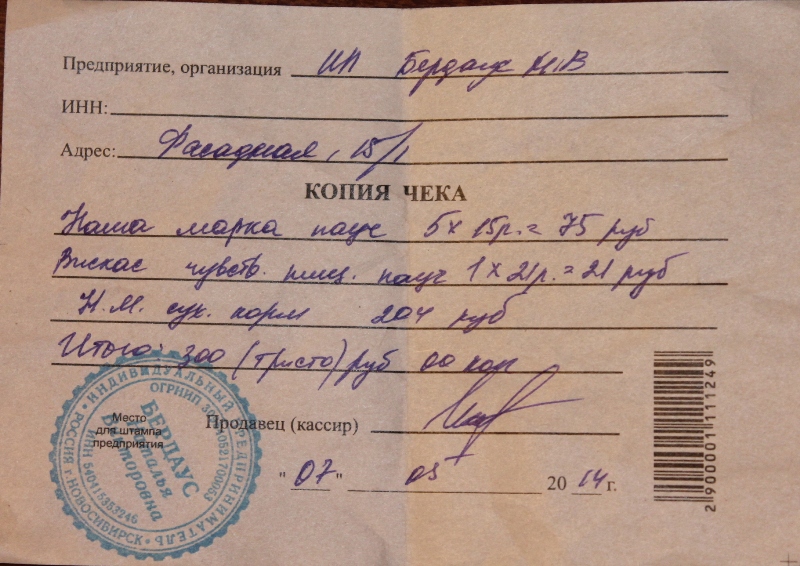 Предприятие, организация ИП Бердаус Н.В
ИНН:
Адрес: Фасадная, 15/1
КОПИЯ ЧЕКА
Наша марка пауч 5 х 15р. = 75 руб
Вискас чувств. пищ. пауч 1 х 21р. = 21 руб
Н.М. сух. корм 204 руб
Итого: 300 (триста) руб 00 коп
Место
для штампа
предприятия
Продавец (кассир)
"07" 05 2014 г.
ИНДИВИДУАЛЬНЫЙ ПРЕДПРИНИМАТЕЛЬ
РОССИЯ г. НОВОСИБИРСК
ОГРНИП
ИНН 540415353246
БЕРДАУС
Наталья
Викторовна
2 900001 111249